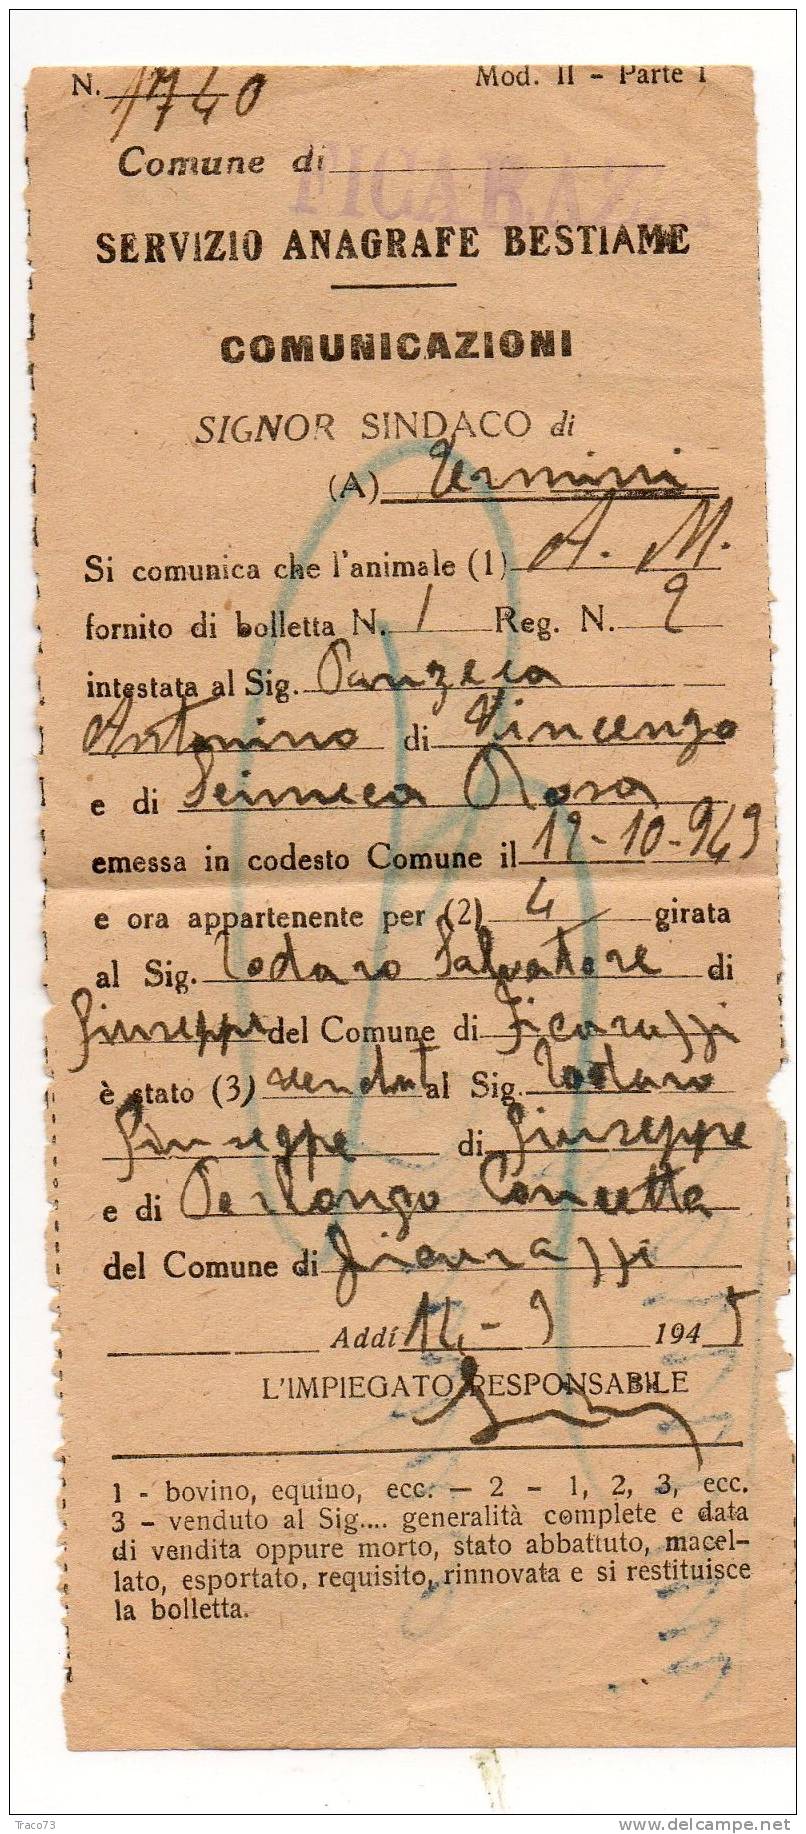 N. 1740 Mod. II - Parte I
Comune di FICARAZZI
SERVIZIO ANAGRAFE BESTIAME
COMUNICAZIONI
SIGNOR SINDACO di
(A) Termini
Si comunica che l'animale (1) A. M.
fornito di bolletta N. 1 Reg. N. 2
intestata al Sig. Panzeca
Antonino di Vincenzo
e di Scimeca Rosa
emessa in codesto Comune il 12-10-943
e ora appartenente per (2) 4 girata
al Sig. Todaro Salvatore di
Giuseppe del Comune di Ficarazzi
è stato (3) vendut al Sig. Todaro
Giuseppe di Giuseppe
e di Perlongo Concetta
del Comune di Ficarazzi
Addí 14-9 1945
L'IMPIEGATO RESPONSABILE
1 - bovino, equino, ecc. — 2 - 1, 2, 3, ecc.
3 - venduto al Sig.... generalità complete e data
di vendita oppure morto, stato abbattuto, macel-
lato, esportato, requisito, rinnovata e si restituisce
la bolletta.
Traco73
www.delcampe.net